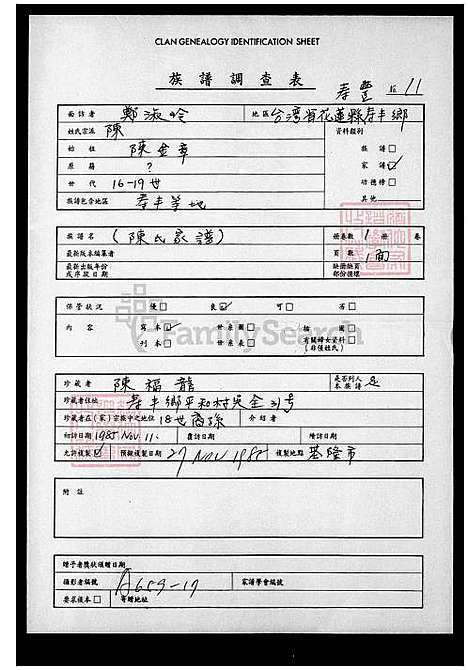 CLAN GENEALOGY IDENTIFICATION SHEET
族譜調查表
寿豐 11
面訪者 鄭淑玲 地區 台灣省花蓮縣寿丰鄉
姓氏宗派 陳 資料類別
始祖 陳金章 族譜□
原籍 ? 家譜☑
世代 16-19世 功德榜□
族譜包含地區 寿丰等地 其他
族譜名 (陳氏家譜) 冊卷數 1 冊 卷
最新版本編纂者 頁數 1面
最新出版年份 缺冊缺頁
或序跋日期 部份情形
保管狀況 優□ 良☑ 可□ 否□
內容 寫本☑ 世系圖□ 插圖□
刊本□ 世系表□ 有關婦女資料□
(非僅姓氏)
珍藏者 陳福龍 是否列入本族譜 是
珍藏者住址 寿丰鄉平和村吳全31号
珍藏者在(家)宗族中之地位 18世裔孫 介紹者
初訪日期 1985 Nov. 11. 復訪日期 續訪日期
允許複製☑ 預擬複製日期 27 NOV 1985 複製地點 基隆市
附註
贈予者獎狀頒贈日期
攝影者編號 A659-17 家譜學會編號
要求儀本□ 寄贈地址
FamilySearch